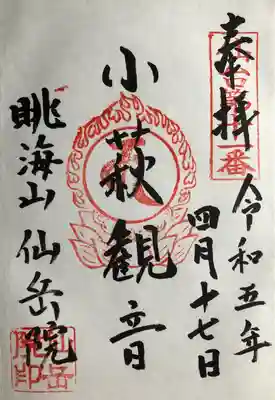 奉拝
令和五年
四月十七日
小萩観音
眺海山 仙岳院